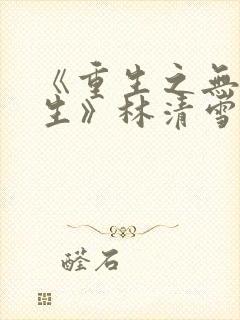 《重生之無
生》林清雪
醛石